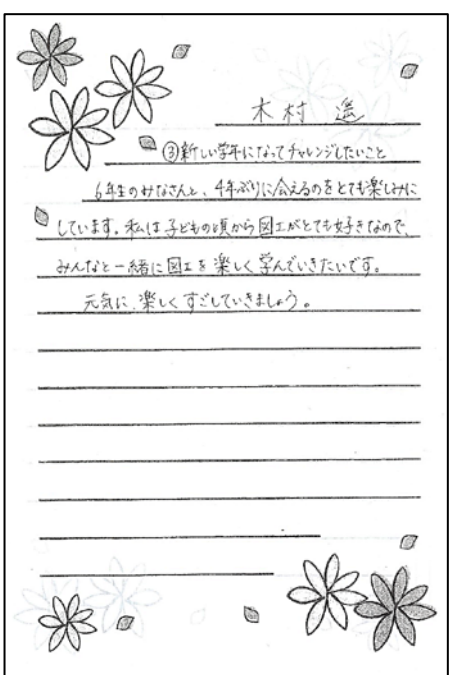 木村 遥
③新しい学年になってチャレンジしたいこと
6年生のみなさんと、4年ぶりに会えるのをとても楽しみに
しています。私は子どもの頃から図工がとても好きなので、
みんなと一緒に図工を楽しく学んでいきたいです。
元気に、楽しくすごしていきましょう。